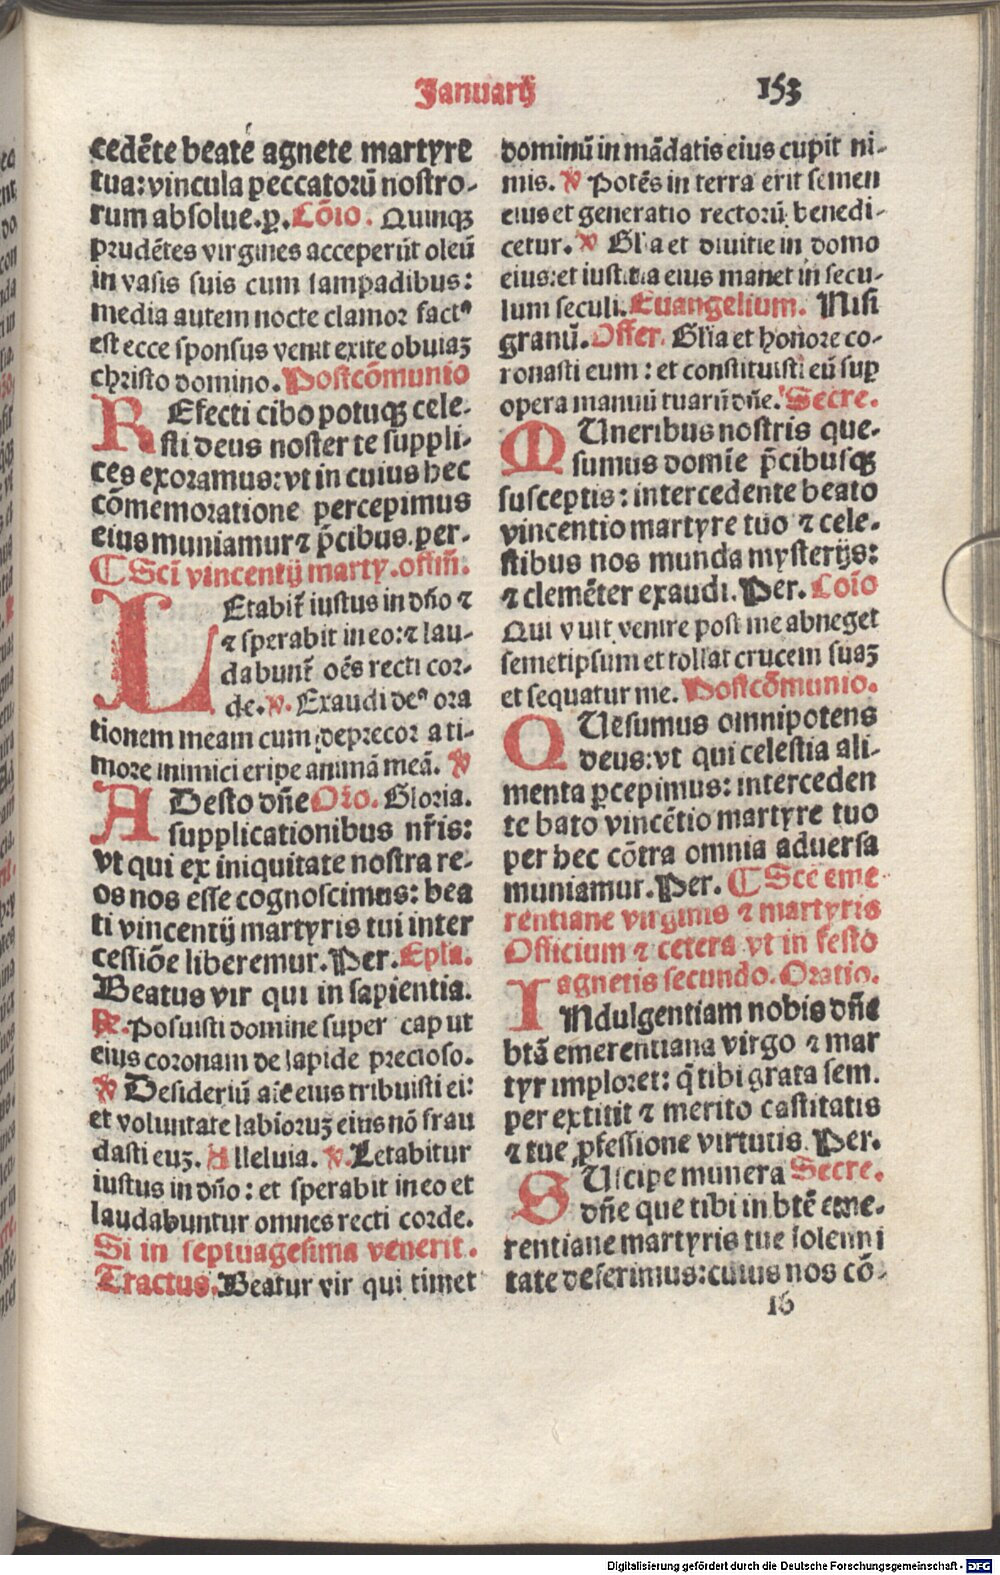 Januarij
153
cedēte beate agnete martyre
tua: vincula peccatorū nostro-
rum absolue. p. Cōio. Quinqꝫ
prudētes virgines acceperūt oleū
in vasis suis cum lampadibus:
media autem nocte clamor factꝰ
est ecce sponsus venit exite obuiaꝫ
christo domino. Postcōmunio
REfecti cibo potuqꝫ cele-
sti deus noster te suppli-
ces exoramus: vt in cuius hec
cōmemoratione percepimus
eius muniamur ⁊ p̄cibus. per.
¶ Scī vincentij marty. offim̄.
LEtabit̄ iustus in dn̄o ⁊
⁊ sperabit in eo: ⁊ lau-
dabunt̄ oēs recti cor-
de. ℣. Exaudi deꝰ ora
tionem meam cum deprecor a ti-
more inimici eripe animā meā. ℣
ADesto dn̄e Orō. Gloria.
supplicationibus nr̄is:
vt qui ex iniquitate nostra re-
os nos esse cognoscimus: bea
ti vincentij martyris tui inter
cessiōe liberemur. Per. Epla.
Beatus vir qui in sapientia.
℟. Posuisti domine super caput
eius coronam de lapide precioso.
℣ Desideriū aīe eius tribuisti ei:
et voluntate labioruꝫ eius nō frau
dasti euꝫ. Alleluia. ℣. Letabitur
iustus in dn̄o: et sperabit in eo et
laudabuntur omnes recti corde.
Si in septuagesima venerit.
Tractus. Beatur vir qui timet
dominū in mādatis eius cupit ni-
mis. ℣ Potēs in terra erit semen
eius et generatio rectorū benedi-
cetur. ℣ Gl'a et diuitie in domo
eius: et iusticia eius manet in secu-
lum seculi. Euangelium. Nisi
granū. Offer. Gl'ia et honore co-
ronasti eum: et constituisti eū sup̄
opera manuū tuarū dn̄e. Secre.
MUneribus nostris que-
sumus domīe p̄cibusqꝫ
susceptis: intercedente beato
vincentio martyre tuo ⁊ cele-
stibus nos munda mysterijs:
⁊ clemēter exaudi. Per. Coīo
Qui vult venire post me abneget
semetipsum et tollat crucem suaꝫ
et sequatur me. Postcōmunio.
QUesumus omnipotens
deus: vt qui celestia ali-
menta ꝑcepimus: interceden
te bato vincētio martyre tuo
per hec cōtra omnia aduersa
muniamur. Per. ¶ Scē eme-
rentiane virginis ⁊ martyris
Officium ⁊ cetera vt in festo
agnetis secundo. Oratio.
INdulgentiam nobis dn̄e
btā emerentiana virgo ⁊ mar
tyr imploret: q̄ tibi grata sem.
per extitit ⁊ merito castitatis
⁊ tue ꝓfessione virtutis. Per.
SUscipe munera Secre.
dn̄e que tibi in btē eme-
rentiane martyris tue solenni
tate deferimus: cuius nos cō-
16
Digitalisierung gefördert durch die Deutsche Forschungsgemeinschaft - DFG